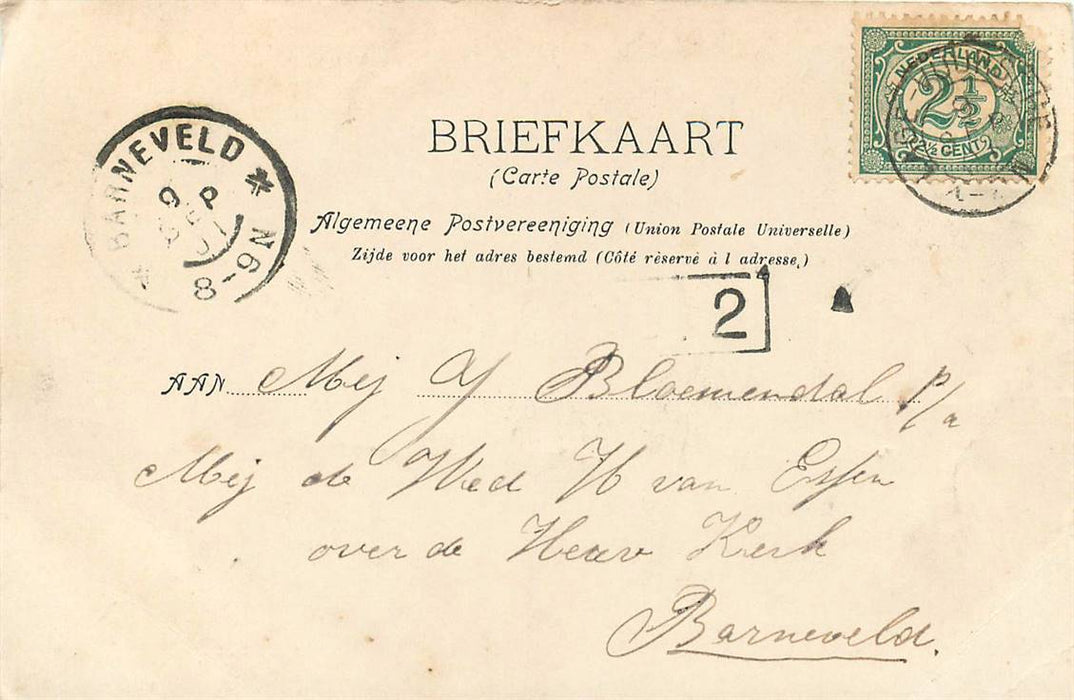 BRIEFKAART
(Carte Postale)
Algemeene Postvereeniging (Union Postale Universelle)
Zijde voor het adres bestemd (Côté réservé à l adresse,)
NEDERLAND
2½
2½ CENT
BARNEVELD * 8-9N *
9 P
2
AAN Mej J Bloemendal p/a
Mej de Wed H van Essen
over de Herv Kerk
Barneveld.